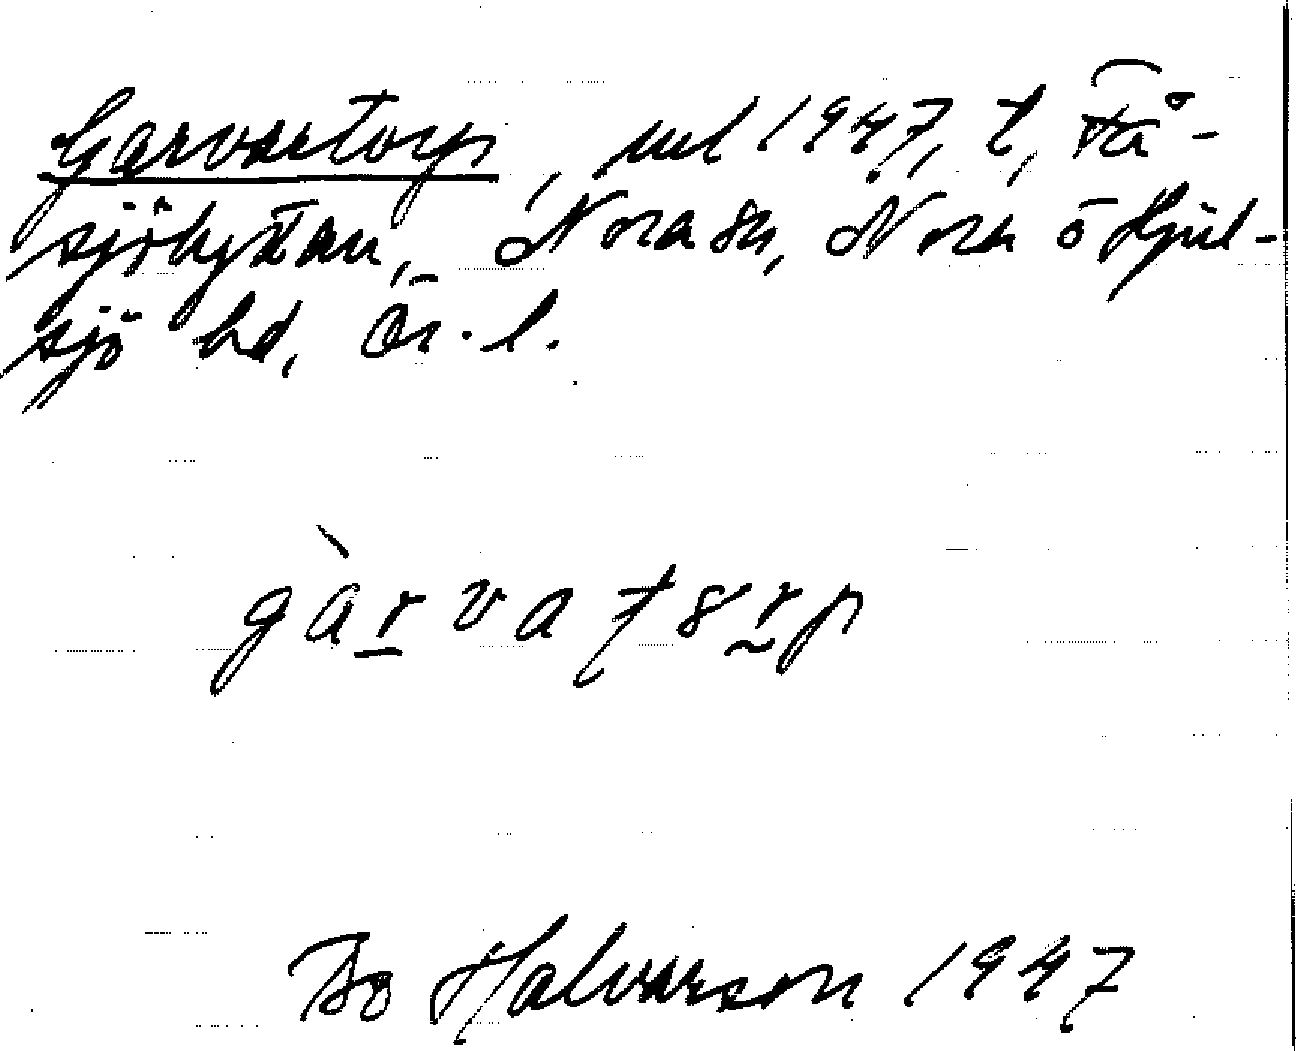 Garvartorp, uel 1947, t, Få-
sjöhyttan, Nora sn, Nora o Hjul-
sjö bd, Ör. l.
gàrvatsrp
Bo Halvarson 1947